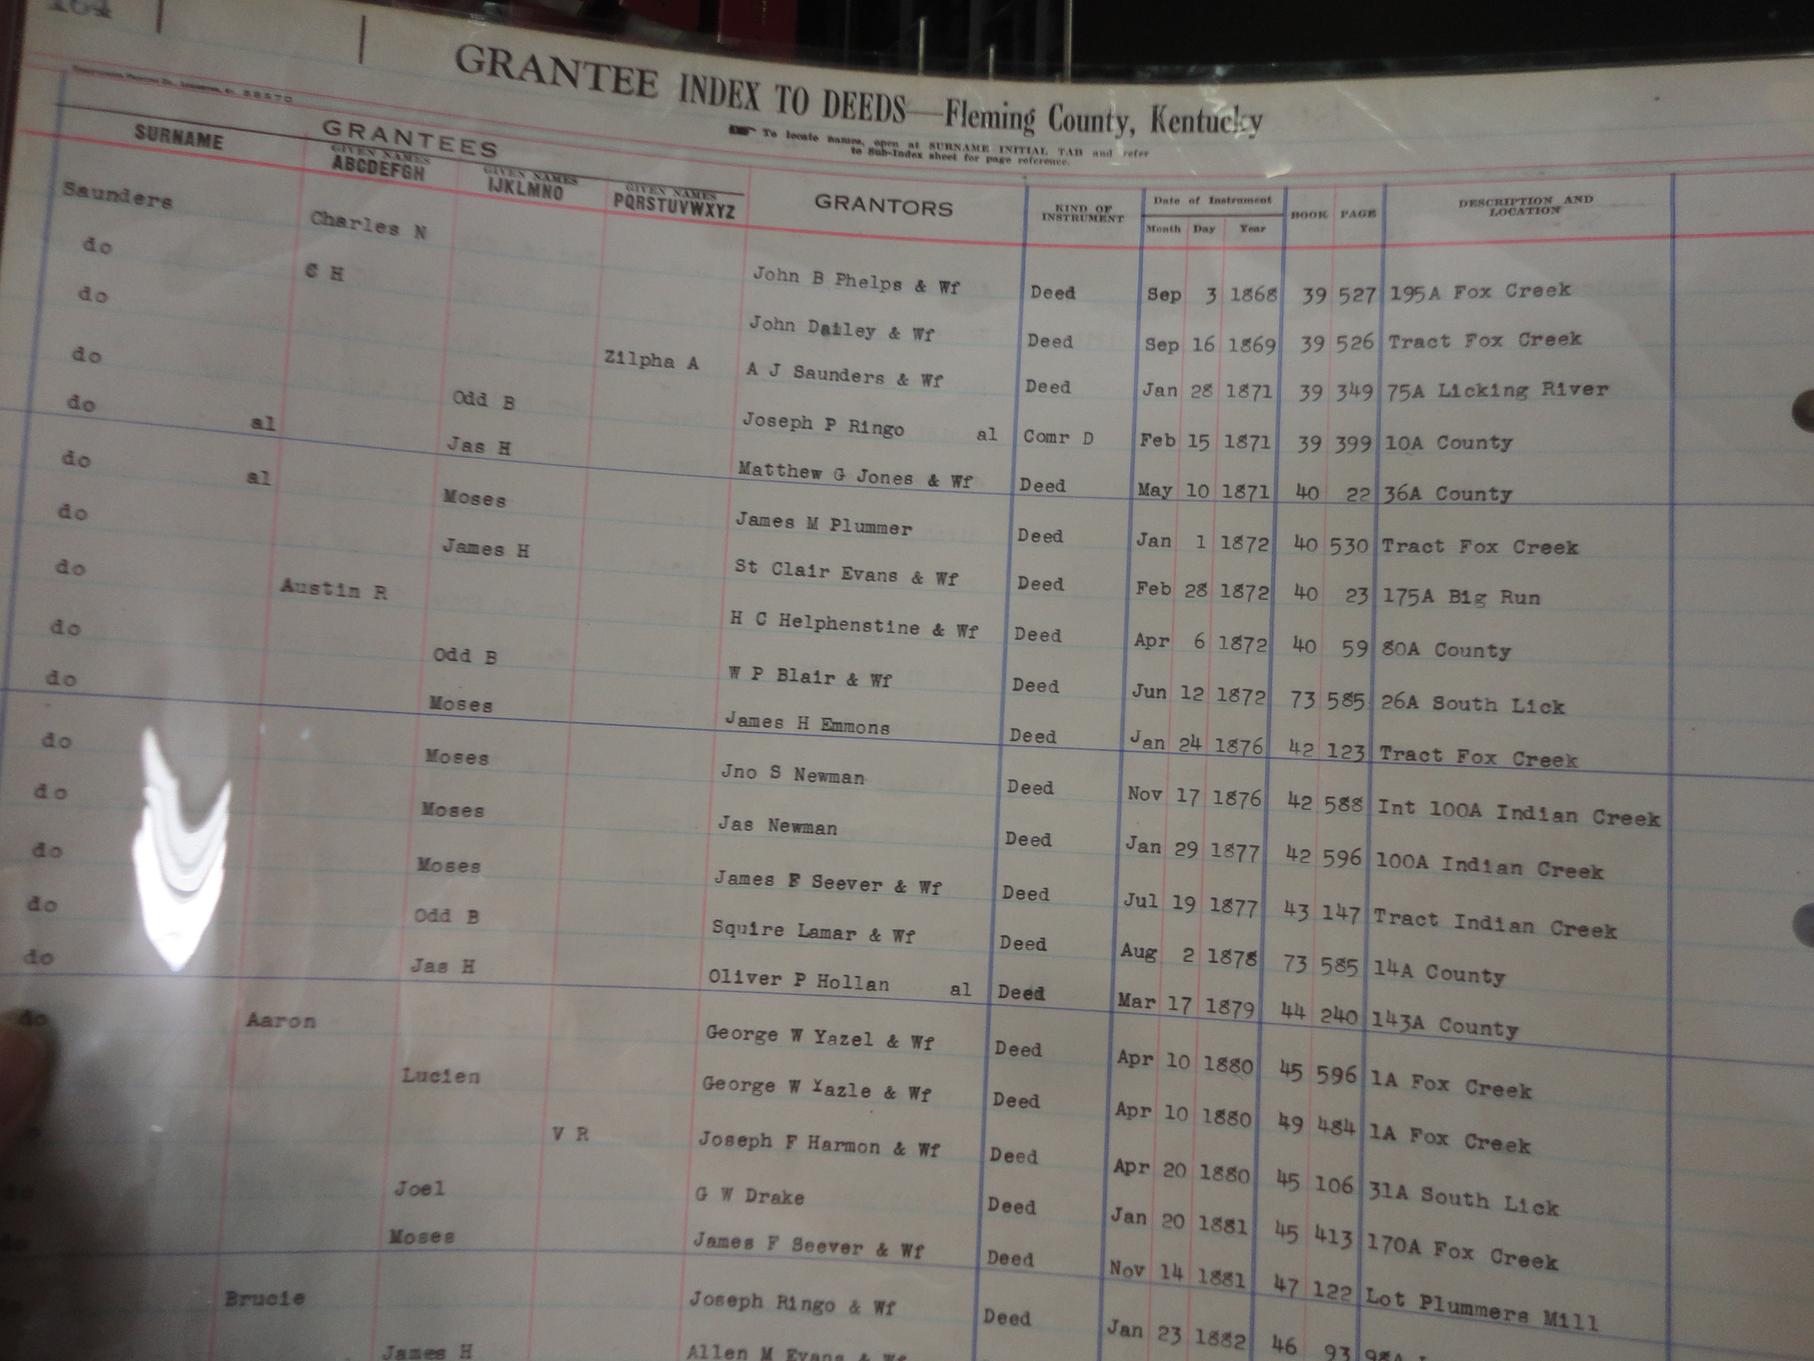 164
GRANTEE INDEX TO DEEDS—Fleming County, Kentucky
To locate names, open at SURNAME INITIAL TAB and refer
to Sub-Index sheet for page reference.
GRANTEES
SURNAME GIVEN NAMES ABCDEFGH GIVEN NAMES IJKLMNO GIVEN NAMES PQRSTUVWXYZ GRANTORS KIND OF INSTRUMENT Date of Instrument Month Day Year BOOK PAGE DESCRIPTION AND LOCATION
Saunders Charles N John B Phelps & Wf Deed Sep 3 1868 39 527 195A Fox Creek
do C H John Dailey & Wf Deed Sep 16 1869 39 526 Tract Fox Creek
do Zilpha A A J Saunders & Wf Deed Jan 28 1871 39 349 75A Licking River
do Odd B Joseph P Ringo al Comr D Feb 15 1871 39 399 10A County
do al Jas H Matthew G Jones & Wf Deed May 10 1871 40 22 36A County
do al Moses James M Plummer Deed Jan 1 1872 40 530 Tract Fox Creek
do James H St Clair Evans & Wf Deed Feb 28 1872 40 23 175A Big Run
do Austin R H C Helphenstine & Wf Deed Apr 6 1872 40 59 80A County
do Odd B W P Blair & Wf Deed Jun 12 1872 73 585 26A South Lick
do Moses James H Emmons Deed Jan 24 1876 42 123 Tract Fox Creek
do Moses Jno S Newman Deed Nov 17 1876 42 588 Int 100A Indian Creek
do Moses Jas Newman Deed Jan 29 1877 42 596 100A Indian Creek
do Moses James F Seever & Wf Deed Jul 19 1877 43 147 Tract Indian Creek
do Odd B Squire Lamar & Wf Deed Aug 2 1878 73 585 14A County
do Jas H Oliver P Hollan al Deed Mar 17 1879 44 240 143A County
do Aaron George W Yazel & Wf Deed Apr 10 1880 45 596 1A Fox Creek
Lucien George W Yazle & Wf Deed Apr 10 1880 49 484 1A Fox Creek
V R Joseph F Harmon & Wf Deed Apr 20 1880 45 106 31A South Lick
Joel G W Drake Deed Jan 20 1881 45 413 170A Fox Creek
Moses James F Seever & Wf Deed Nov 14 1881 47 122 Lot Plummers Mill
Brucie Joseph Ringo & Wf Deed Jan 23 1882 46 93
James H Allen M Evans & Wf